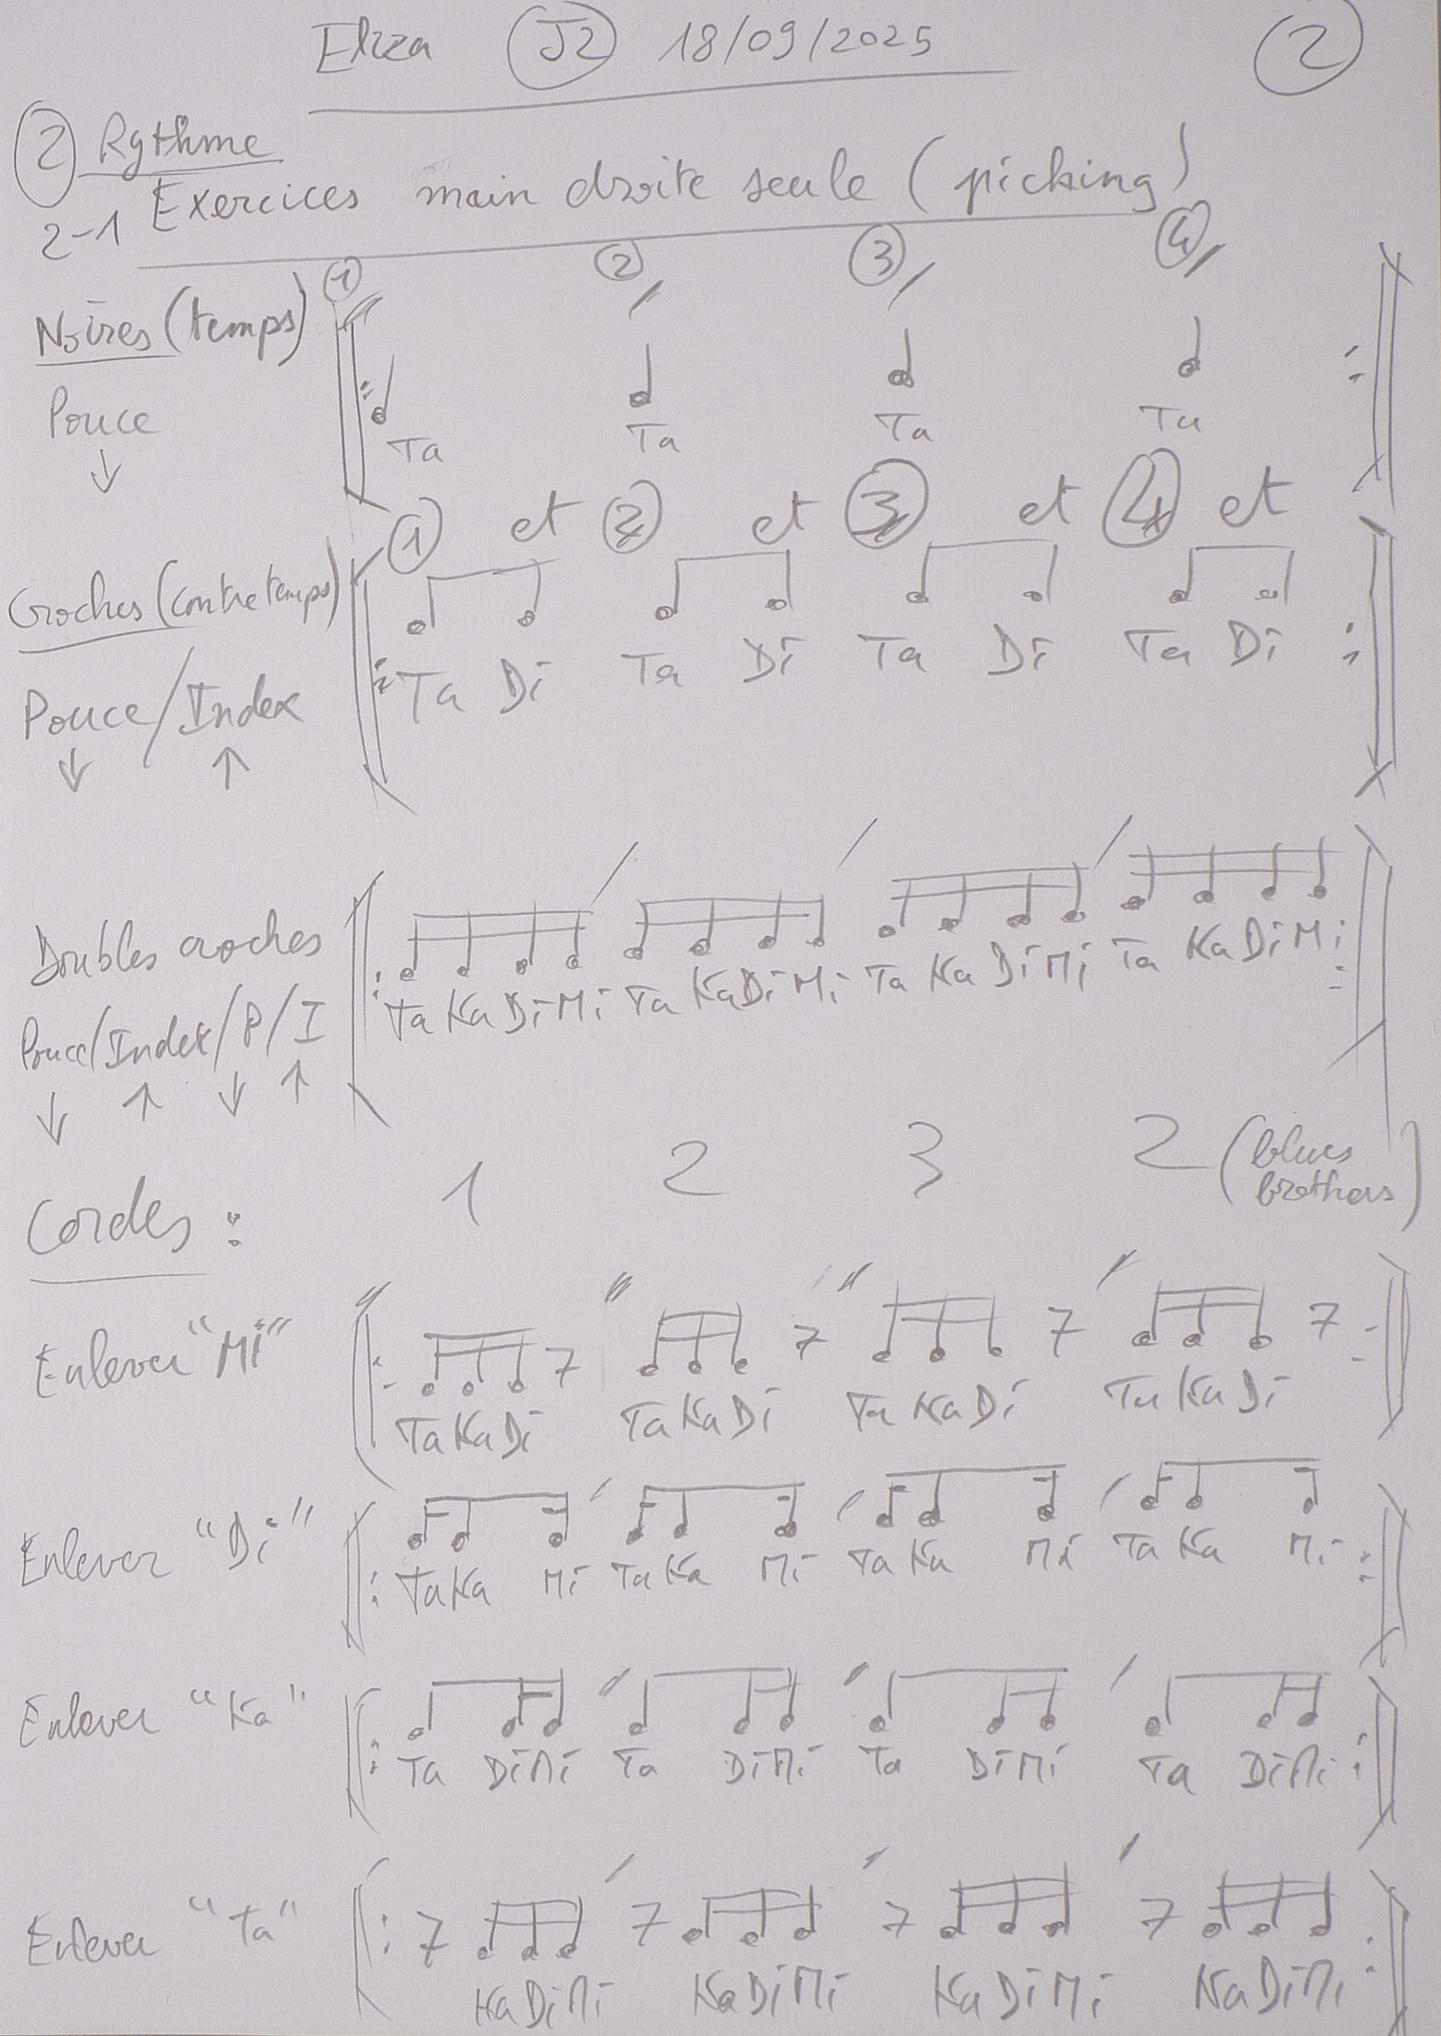 Eliza J2 18/09/2025 2
2 Rythme
2-1 Exercices main droite seule (picking)
1 2 3 4
Noires (temps)
Pouce
↓
Ta Ta Ta Ta
1 et 2 et 3 et 4 et
Croches (contretemps)
Ta Di Ta Di Ta Di Ta Di
Pouce/Index
↓ ↑
Doubles croches
Ta Ka Di Mi Ta Ka Di Mi Ta Ka Di Mi Ta Ka Di Mi
Pouce/Index/P/I
↓ ↑ ↓ ↑
Cordes : 1 2 3 2 (blues brothers)
Enlever "Mi"
Ta Ka Di Ta Ka Di Ta Ka Di Ta Ka Di
Enlever "Di"
Ta Ka Mi Ta Ka Mi Ta Ka Mi Ta Ka Mi
Enlever "Ka"
Ta Di Mi Ta Di Mi Ta Di Mi Ta Di Mi
Enlever "Ta"
Ka Di Mi Ka Di Mi Ka Di Mi Ka Di Mi